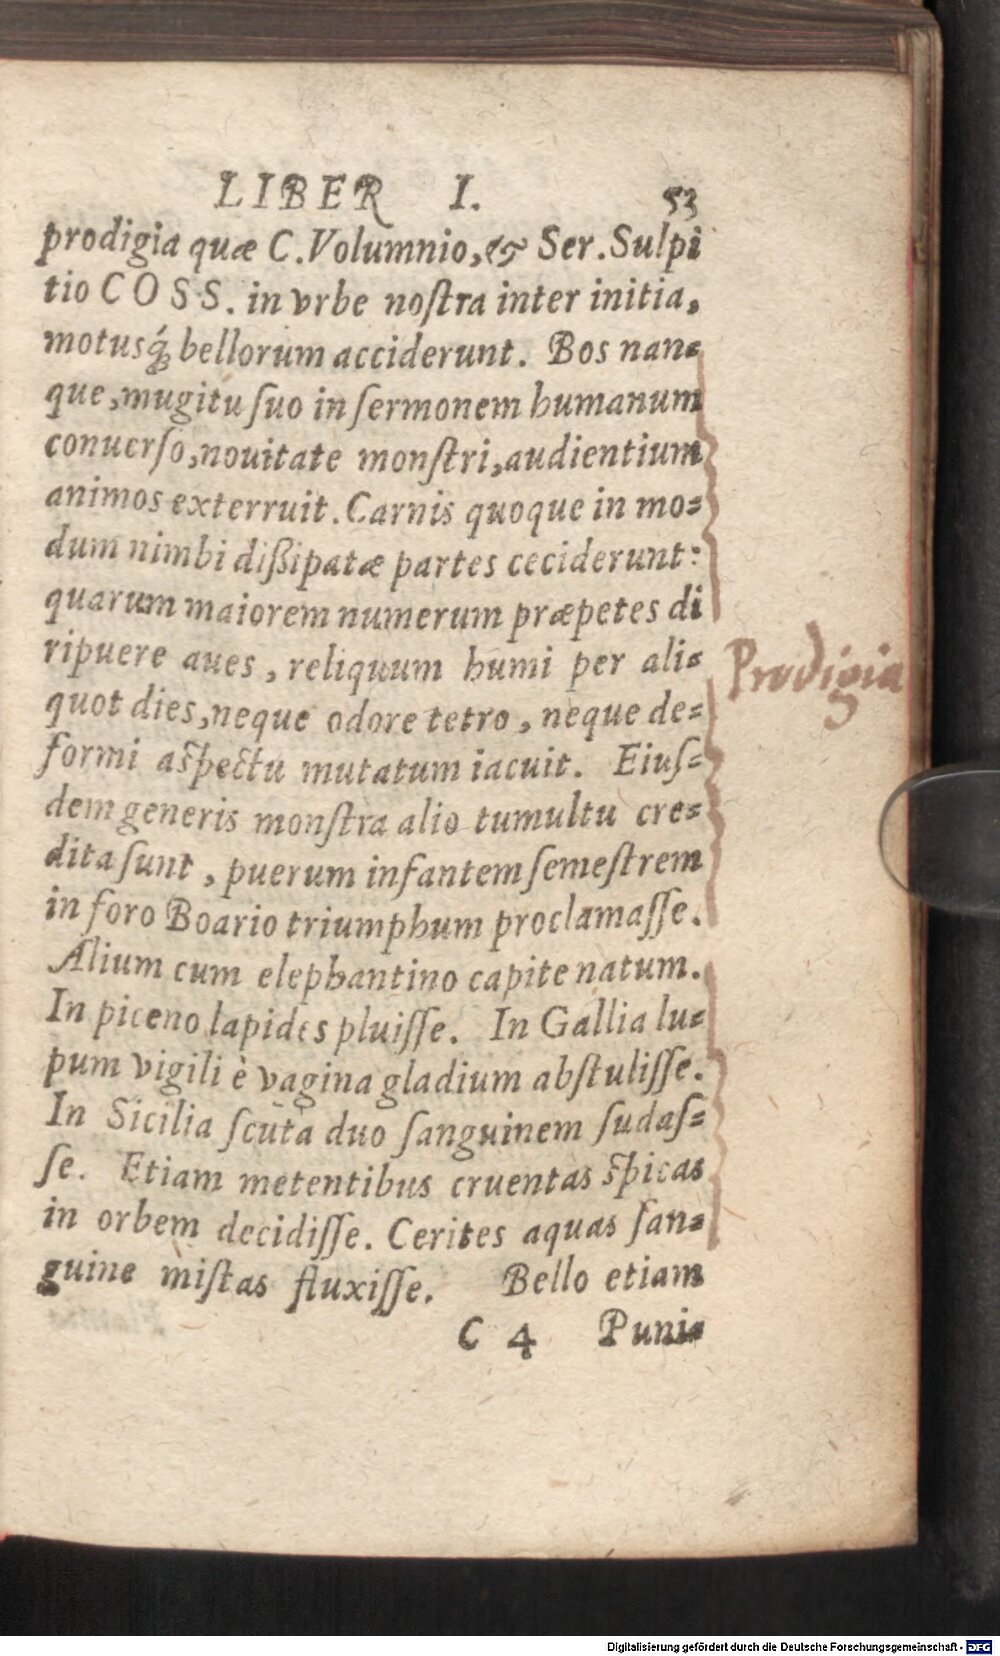 LIBER I. 53
prodigia quæ C. Volumnio, & Ser. Sulpi
tio COSS. in vrbe noſtra inter initia,
motusq́; bellorum acciderunt. Bos nan-
que, mugitu ſuo in ſermonem humanum
conuerſo, nouitate monſtri, audientium
animos exterruit. Carnis quoque in mo-
dum nimbi dißipatæ partes ceciderunt:
quarum maiorem numerum præpetes di
ripuere aues, reliquum humi per ali-
quot dies, neque odore tetro, neque de-
formi aſpectu mutatum iacuit. Eiuſ-
dem generis monſtra alio tumultu cre-
dita ſunt, puerum infantem ſemeſtrem
in foro Boario triumphum proclamaſſe.
Alium cum elephantino capite natum.
In piceno lapides pluiſſe. In Gallia lu-
pum vigili è vagina gladium abſtuliſſe.
In Sicilia ſcuta duo ſanguinem ſudaſ-
ſe. Etiam metentibus cruentas ſpicas
in orbem decidiſſe. Cerites aquas ſan-
guine miſtas fluxiſſe. Bello etiam
C 4 Puni-
Prodigia
Digitalisierung gefördert durch die Deutsche Forschungsgemeinschaft - DFG